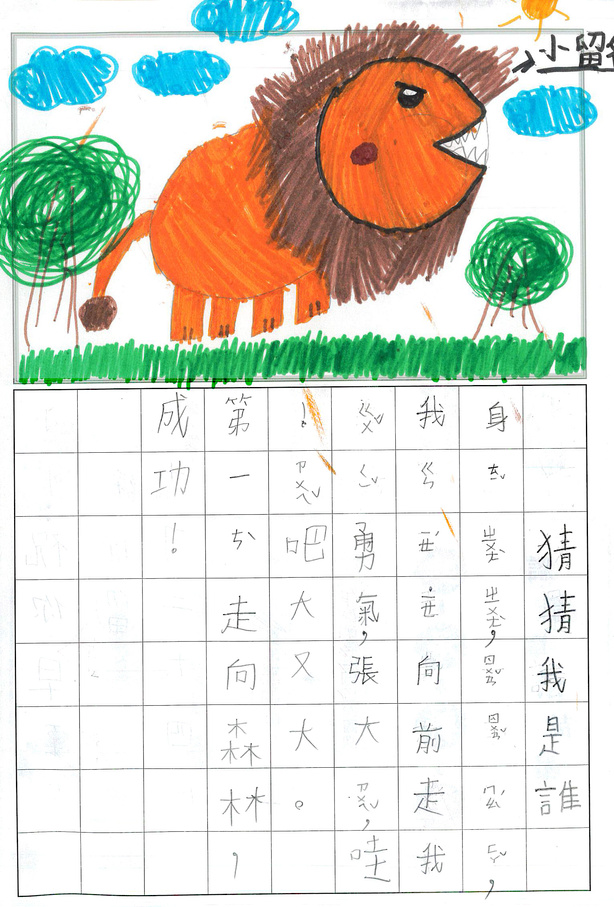 小留
猜猜我是誰
身ㄊㄧˇㄓㄨㄤˋㄓㄨㄤˋ，ㄇㄠˊㄈㄚˇ，
我向前走我
ㄍㄨˇㄑㄧˇ勇氣，張大ㄗㄨㄟˇ，哇
！ㄗㄨㄟˇ吧大又大。
第一ㄘˋ走向森林，
成功！